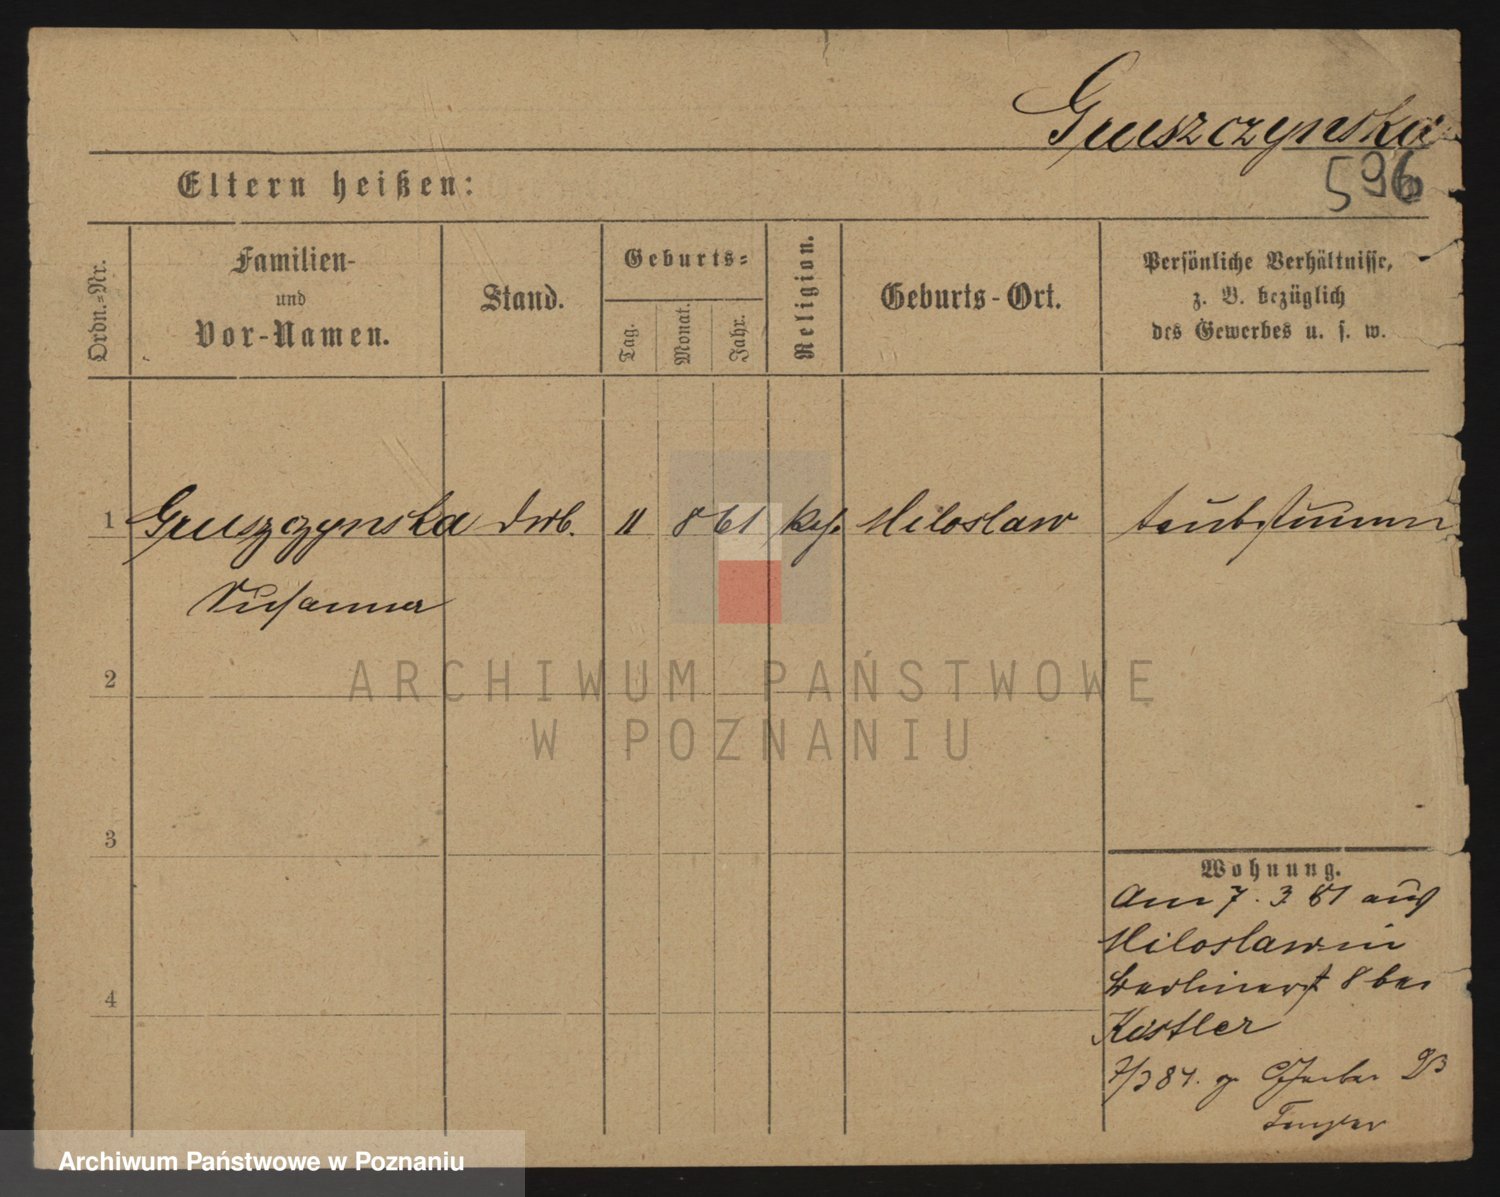 Gruszczynska
596
Eltern heißen:
Ordn.-Nr.
Familien-
und
Vor-Namen.
Stand.
Geburts-
Tag.
Monat.
Jahr.
Religion.
Geburts-Ort.
Persönliche Verhältnisse,
z. B. bezüglich
des Gewerbes u. s. w.
1 Gruszczynska 11 8 61 Miloslaw taubstumm
Susanna
2
3
4
Wohnung.
Am 7. 3. 81 aus
Miloslaw in
Berlinerst 8 bei
Kistler
ARCHIWUM PAŃSTWOWE
W POZNANIU
Archiwum Państwowe w Poznaniu